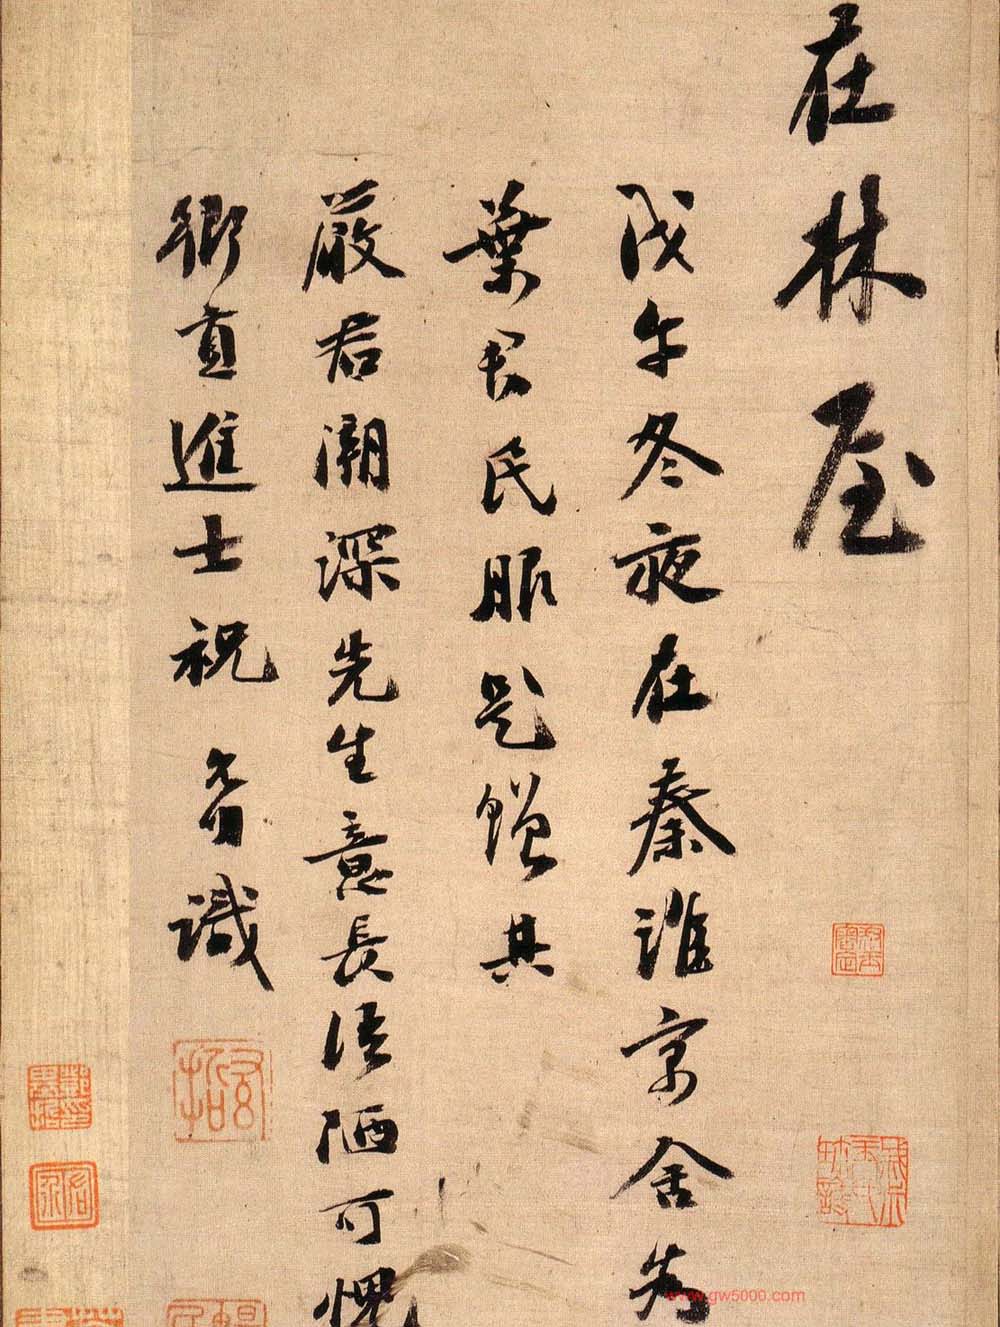 在林屋
戊午冬夜在秦淮寓舍為
葉君民服題贈其
嚴君潮深先生意長語陋可愧
鄉貢進士祝允明識
www.gw5000.com